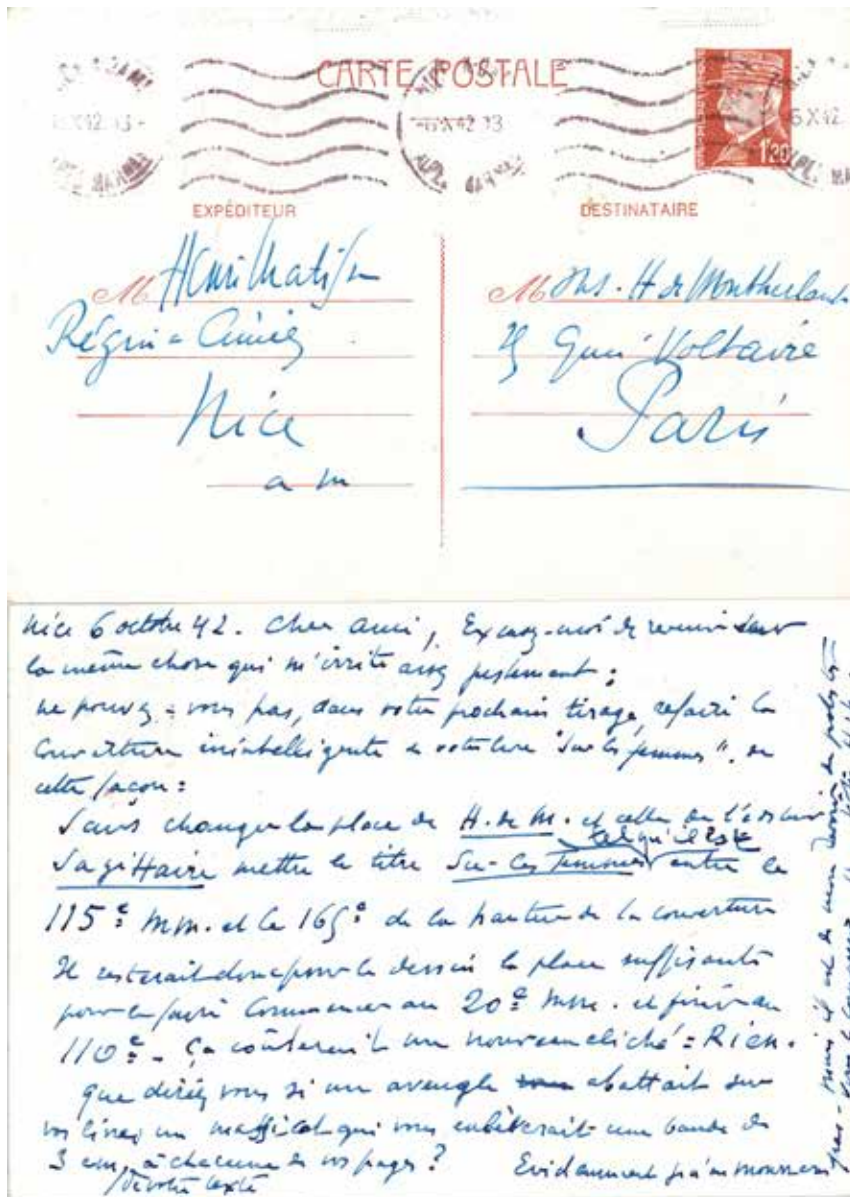 CARTE POSTALE
-6 X 42 13-
1f20
EXPÉDITEUR
DESTINATAIRE
M Henri Matisse
Régina Cimiez
Nice
a m
M ons. H de Montherlant
25 Quai Voltaire
Paris
Nice 6 octobre 42. Cher ami, Excusez-moi de revenir sur
la même chose qui m'irrite assez justement :
ne pouvez-vous pas, dans votre prochain tirage, refaire la
couverture inintelligente de votre livre "Sur les femmes". de
cette façon :
Sans changer la place de H. de M. et celle de l'éditeur
tel qu'il est
Sagittaire mettre le titre Sur les femmes entre le
115e mm. et le 165e de la hauteur de la couverture
Il resterait donc pour le dessin la place suffisante
pour le faire commencer au 20e mm. et finir au
110e. Ça coûterait un nouveau cliché = Rien.
Que diriez vous si un aveugle abattait sur
vos livres un massicot qui vous enlèverait une bande de
3 cm. à chacune de vos pages ?
de votre texte
Evidemment
mais il est de mon devoir de protester